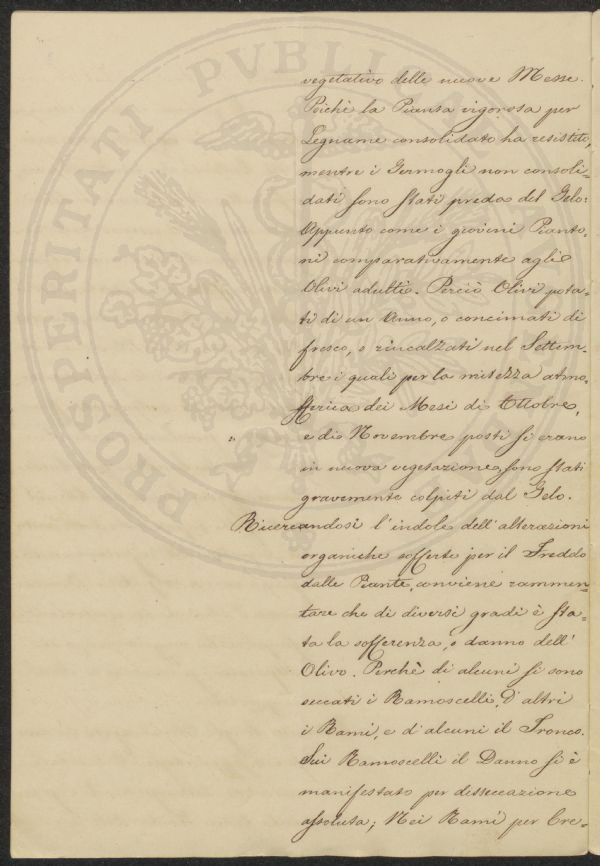 PROSPERITATI PVBLICAE
vegetativo delle nuove Messe.
Poichè la Pianta vigorosa per
Legname consolidato ha resistito,
mentre i Germogli non consoli-
dati sono stati preda del Gelo:
Appunto come i giovini Pianto-
ni comparativamente agli
Olivi adulti. Perciò Olivi pota-
ti di un Anno, o concimati di
fresco, o rincalzati nel Settem-
bre i quali per la mitezza atmo-
sferica dei Mesi di Ottobre,
e di Novembre posti si erano
in nuova vegetazione, sono stati
gravemente colpiti dal Gelo.
Ricercandosi l'indole dell'alterazioni
organiche sofferte per il Freddo
dalle Piante, conviene rammen-
tare che di diversi gradi è sta-
ta la sofferenza, o danno dell'
Olivo. Perchè di alcuni si sono
seccati i Ramoscelli, d'altri
i Rami, e d'alcuni il Tronco.
Sui Ramoscelli il Danno si è
manifestato per disseccazione
assoluta; Nei Rami per Cre-